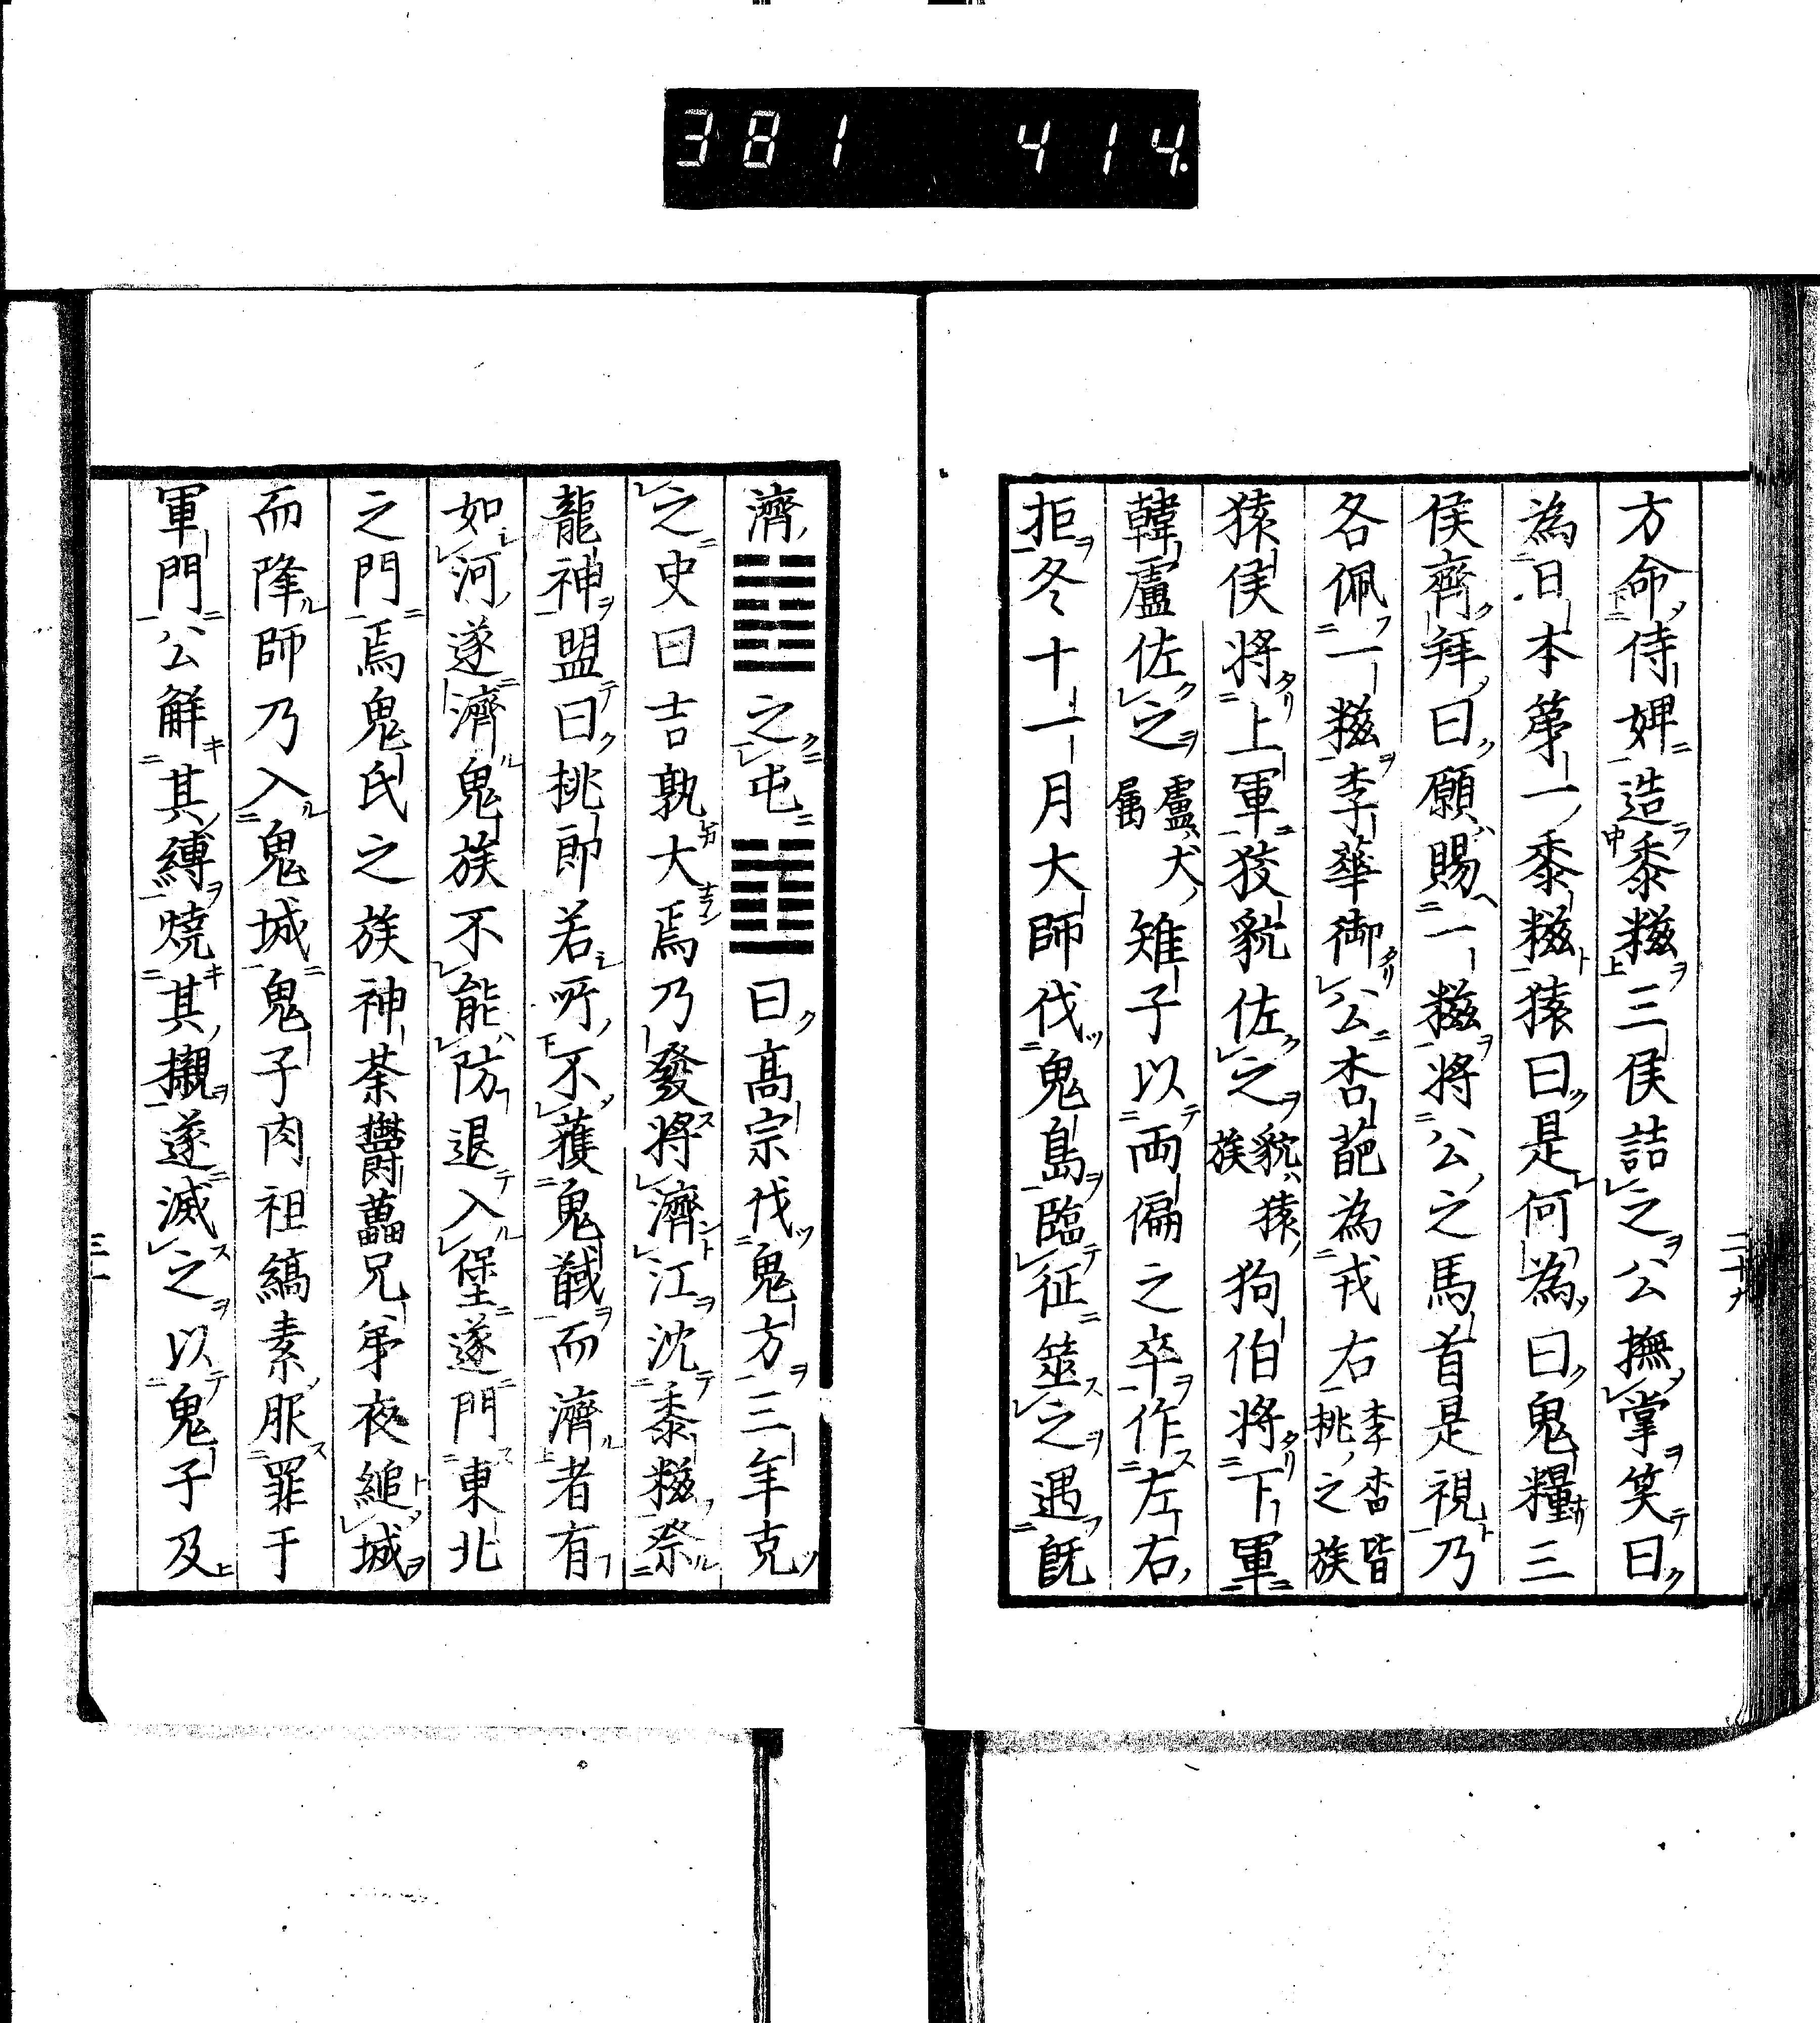 381 414.
方命侍婢造黍糍三侯詰之公撫掌笑曰
為日本第一黍糍猿曰是何為曰鬼糧三
侯齊拜曰願賜一糍將公之馬首是視乃
各佩一糍李華御公杏葩為戎右李杏皆桃之族
猿侯將上軍狡貌佐之貌猿族狗伯將下軍
韓盧佐之盧犬屬雉子以両偏之卒作左右
拒冬十一月大師伐鬼島臨征筮之遇既
濟之屯曰高宗伐鬼方三年克
之史曰吉孰大焉乃發將濟江沈黍糍祭
龍神盟曰桃郎若所不獲鬼馘而濟者有
如河遂濟鬼族不能防退入堡遂門東北
之門焉鬼氏之族神荼鬱藟兄弟夜縋城
而降師乃入鬼城鬼子肉袒縞素服罪于
軍門公解其縛燒其櫬遂滅之以鬼子及